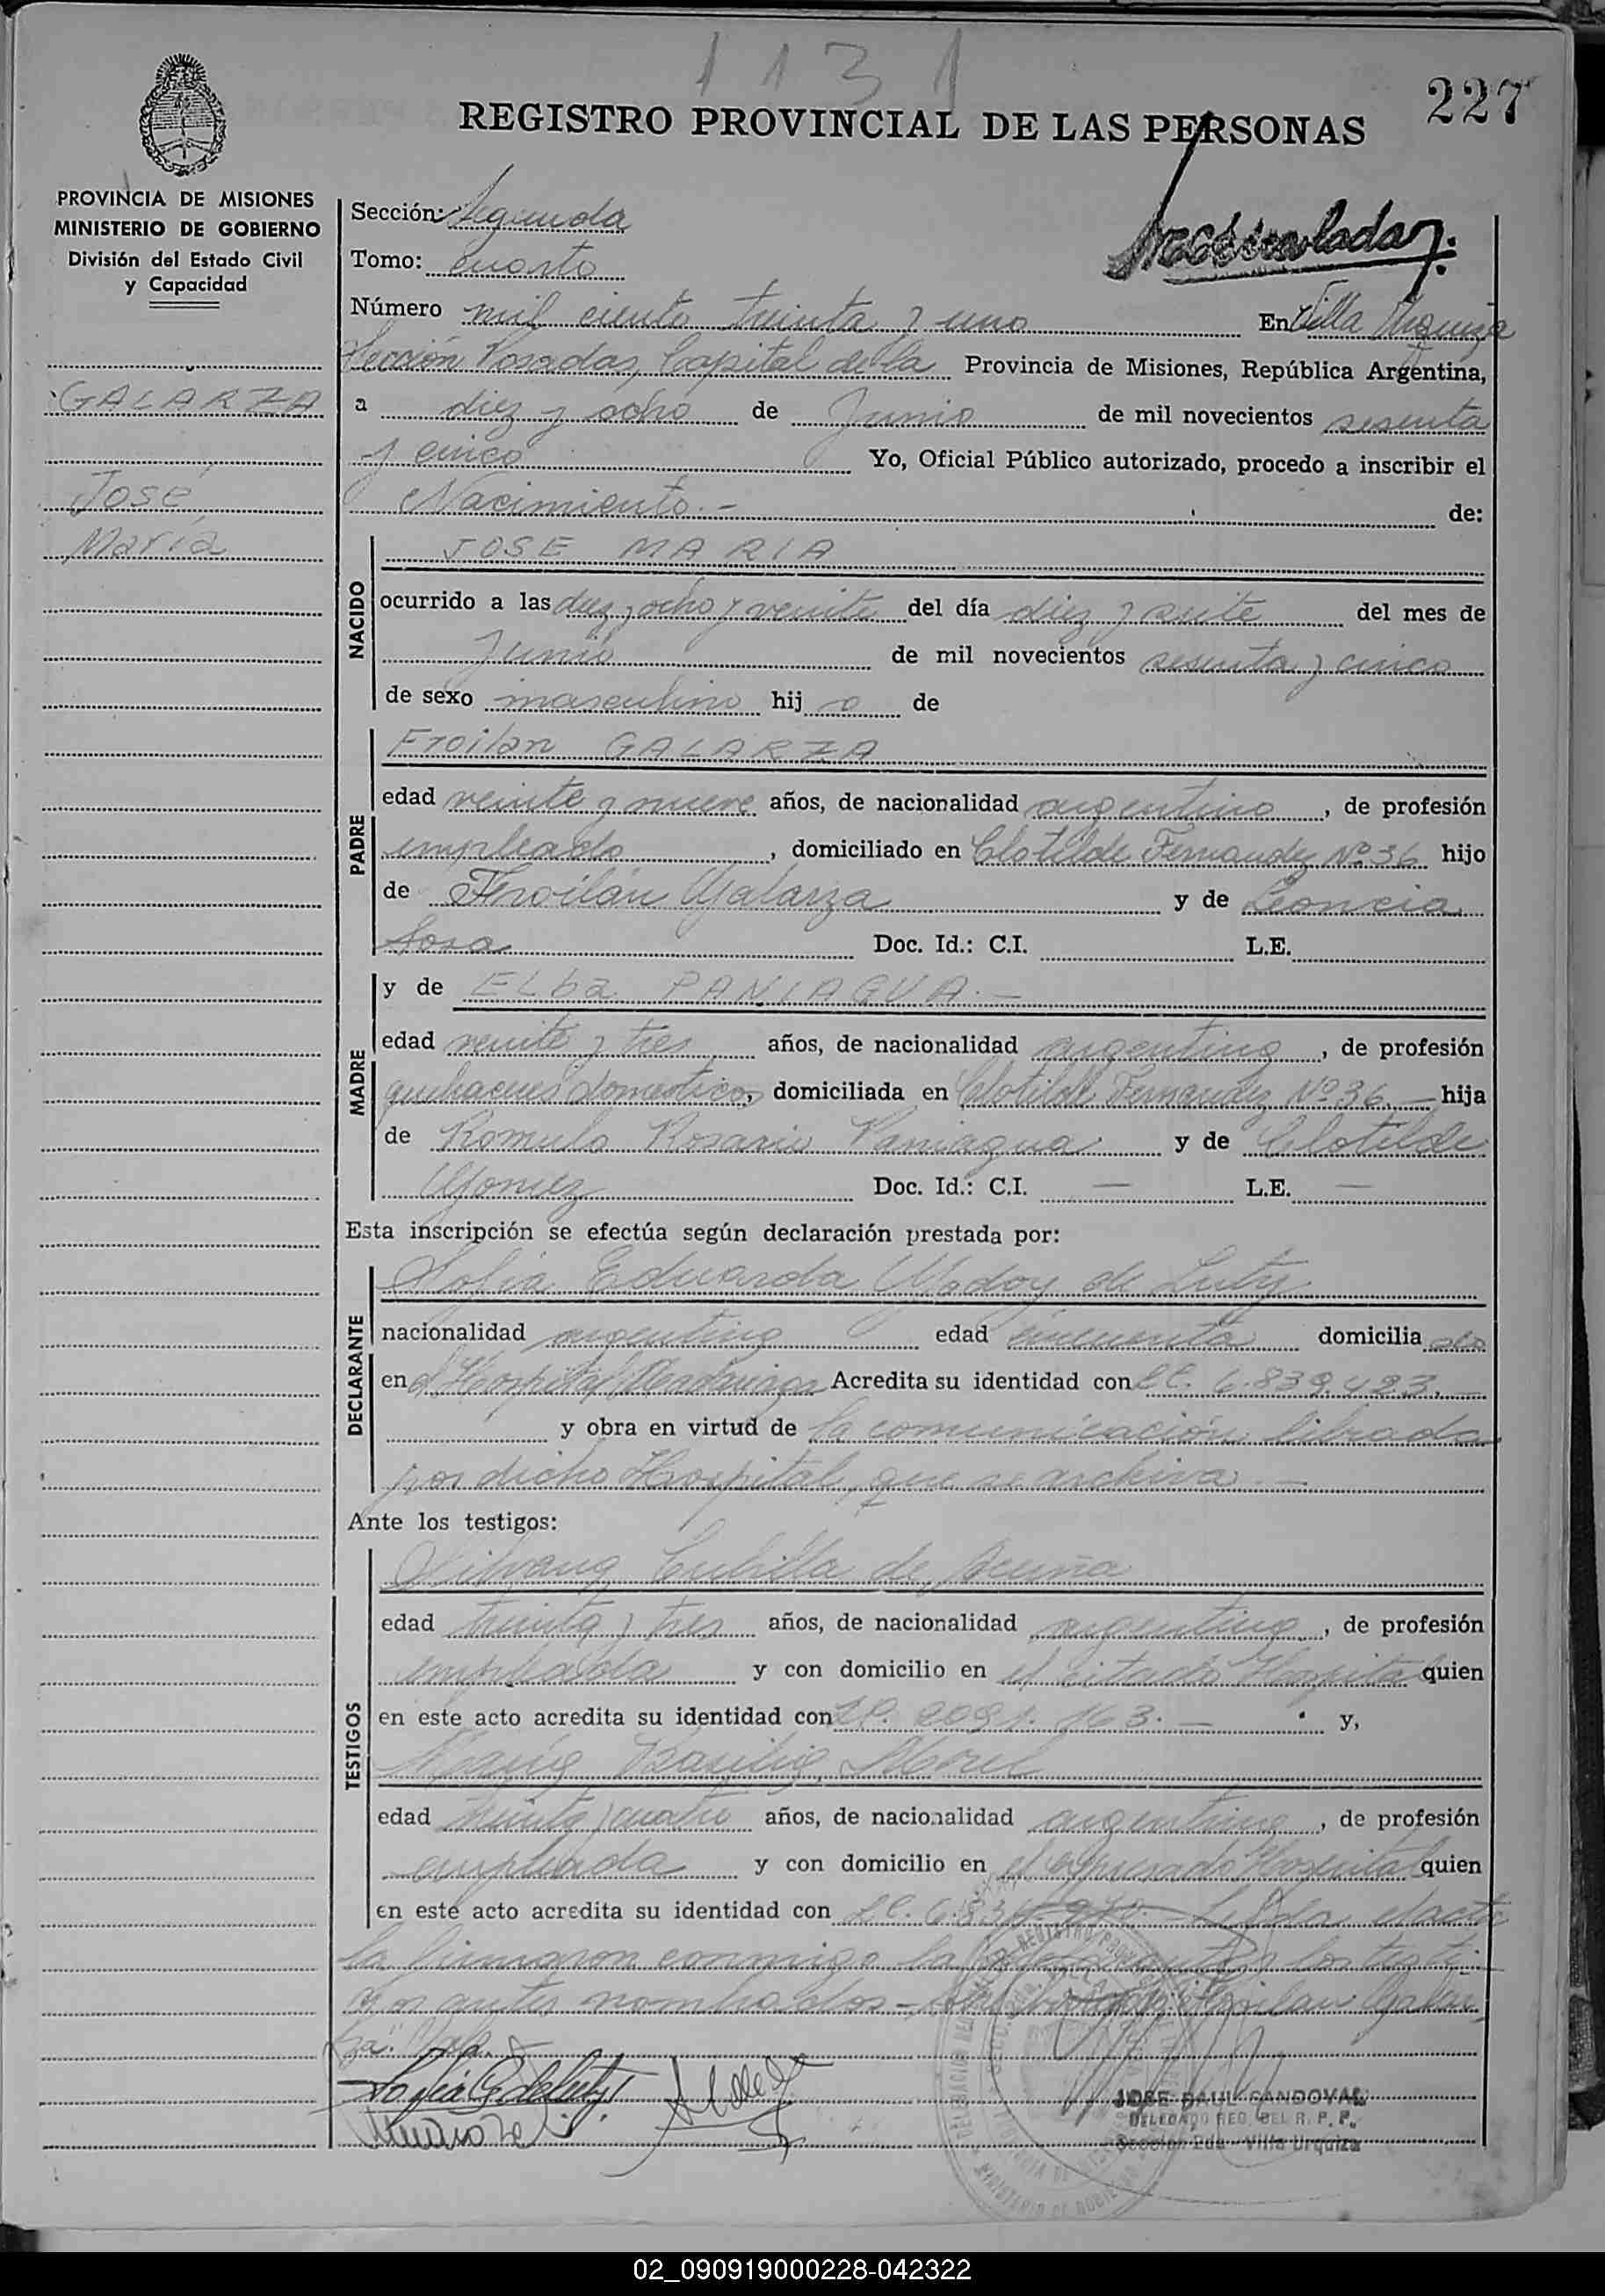 1131
227
REGISTRO PROVINCIAL DE LAS PERSONAS
PROVINCIA DE MISIONES
MINISTERIO DE GOBIERNO
División del Estado Civil
y Capacidad
GALARZA
José
María
Sección: Segunda
Tomo: cuarto
Número mil ciento treinta y uno En Villa Urquiza
Sección Posadas, Capital de la Provincia de Misiones, República Argentina,
a diez y ocho de Junio de mil novecientos sesenta
y cinco Yo, Oficial Público autorizado, procedo a inscribir el
Nacimiento.- de:
NACIDO
JOSE MARIA
ocurrido a las diez y ocho y veinte del día diez y siete del mes de
Junio de mil novecientos sesenta y cinco
de sexo masculino hij o de
PADRE
Froilan GALARZA
edad veinte y nueve años, de nacionalidad argentino, de profesión
empleado, domiciliado en Clotilde Fernandez Nº 36 hijo
de Froilán Galarza y de Leoncia
Sosa Doc. Id.: C.I. L.E.
MADRE
y de Elba PANIAGUA.-
edad veinte y tres años, de nacionalidad argentina, de profesión
quehaceres domesticos, domiciliada en Clotilde Fernandez Nº 36.- hija
de Romulo Rosario Paniagua y de Clotilde
Gomez Doc. Id.: C.I. — L.E. —
Esta inscripción se efectúa según declaración prestada por:
DECLARANTE
Sofia Eduarda Godoy de Luty
nacionalidad argentina edad cincuenta domicilia da
en el Hospital Madariaga Acredita su identidad con L.C. 6.839.423.-
y obra en virtud de la comunicación librada
por dicho Hospital, que se archiva.-
Ante los testigos:
TESTIGOS
Silvana Cubilla de Acuña
edad treinta y tres años, de nacionalidad argentina, de profesión
empleada y con domicilio en el citado Hospital quien
en este acto acredita su identidad con 2091.163.- y,
María Basilia Morel
edad treinta y cuatro años, de nacionalidad argentina, de profesión
empleada y con domicilio en el expresado Hospital quien
en este acto acredita su identidad con L.C. Leída el acta
la firmaron conmigo la declarante y los testi-
gos antes nombrados- Froilan Galar-
za" Vale.
JOSE RAUL SANDOVAL
DELEGADO REG. DEL R. P. P.
Sección 2da - Villa Urquiza
02_090919000228-042322